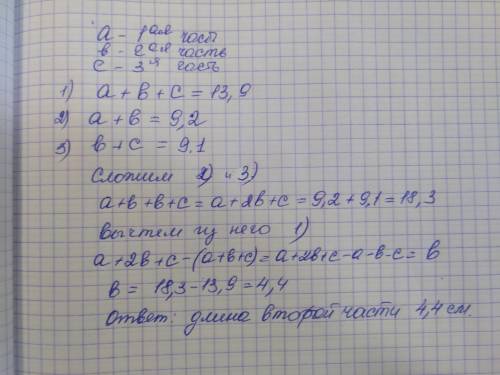 а - 1ая часть
в - 2ая часть
с - 3я часть
1) а + в + с = 13,9
2) а + в = 9,2
3) в + с = 9.1
Сложим 2) и 3)
а+в +в+с = а+2в+с = 9,2+9,1=18,3
вычтем из него 1)
а+2в+с-(а+в+с)= а+2в+с-а-в-с= в
в = 18,3-13,9=4,4
Ответ: длина второй части 4,4 см.